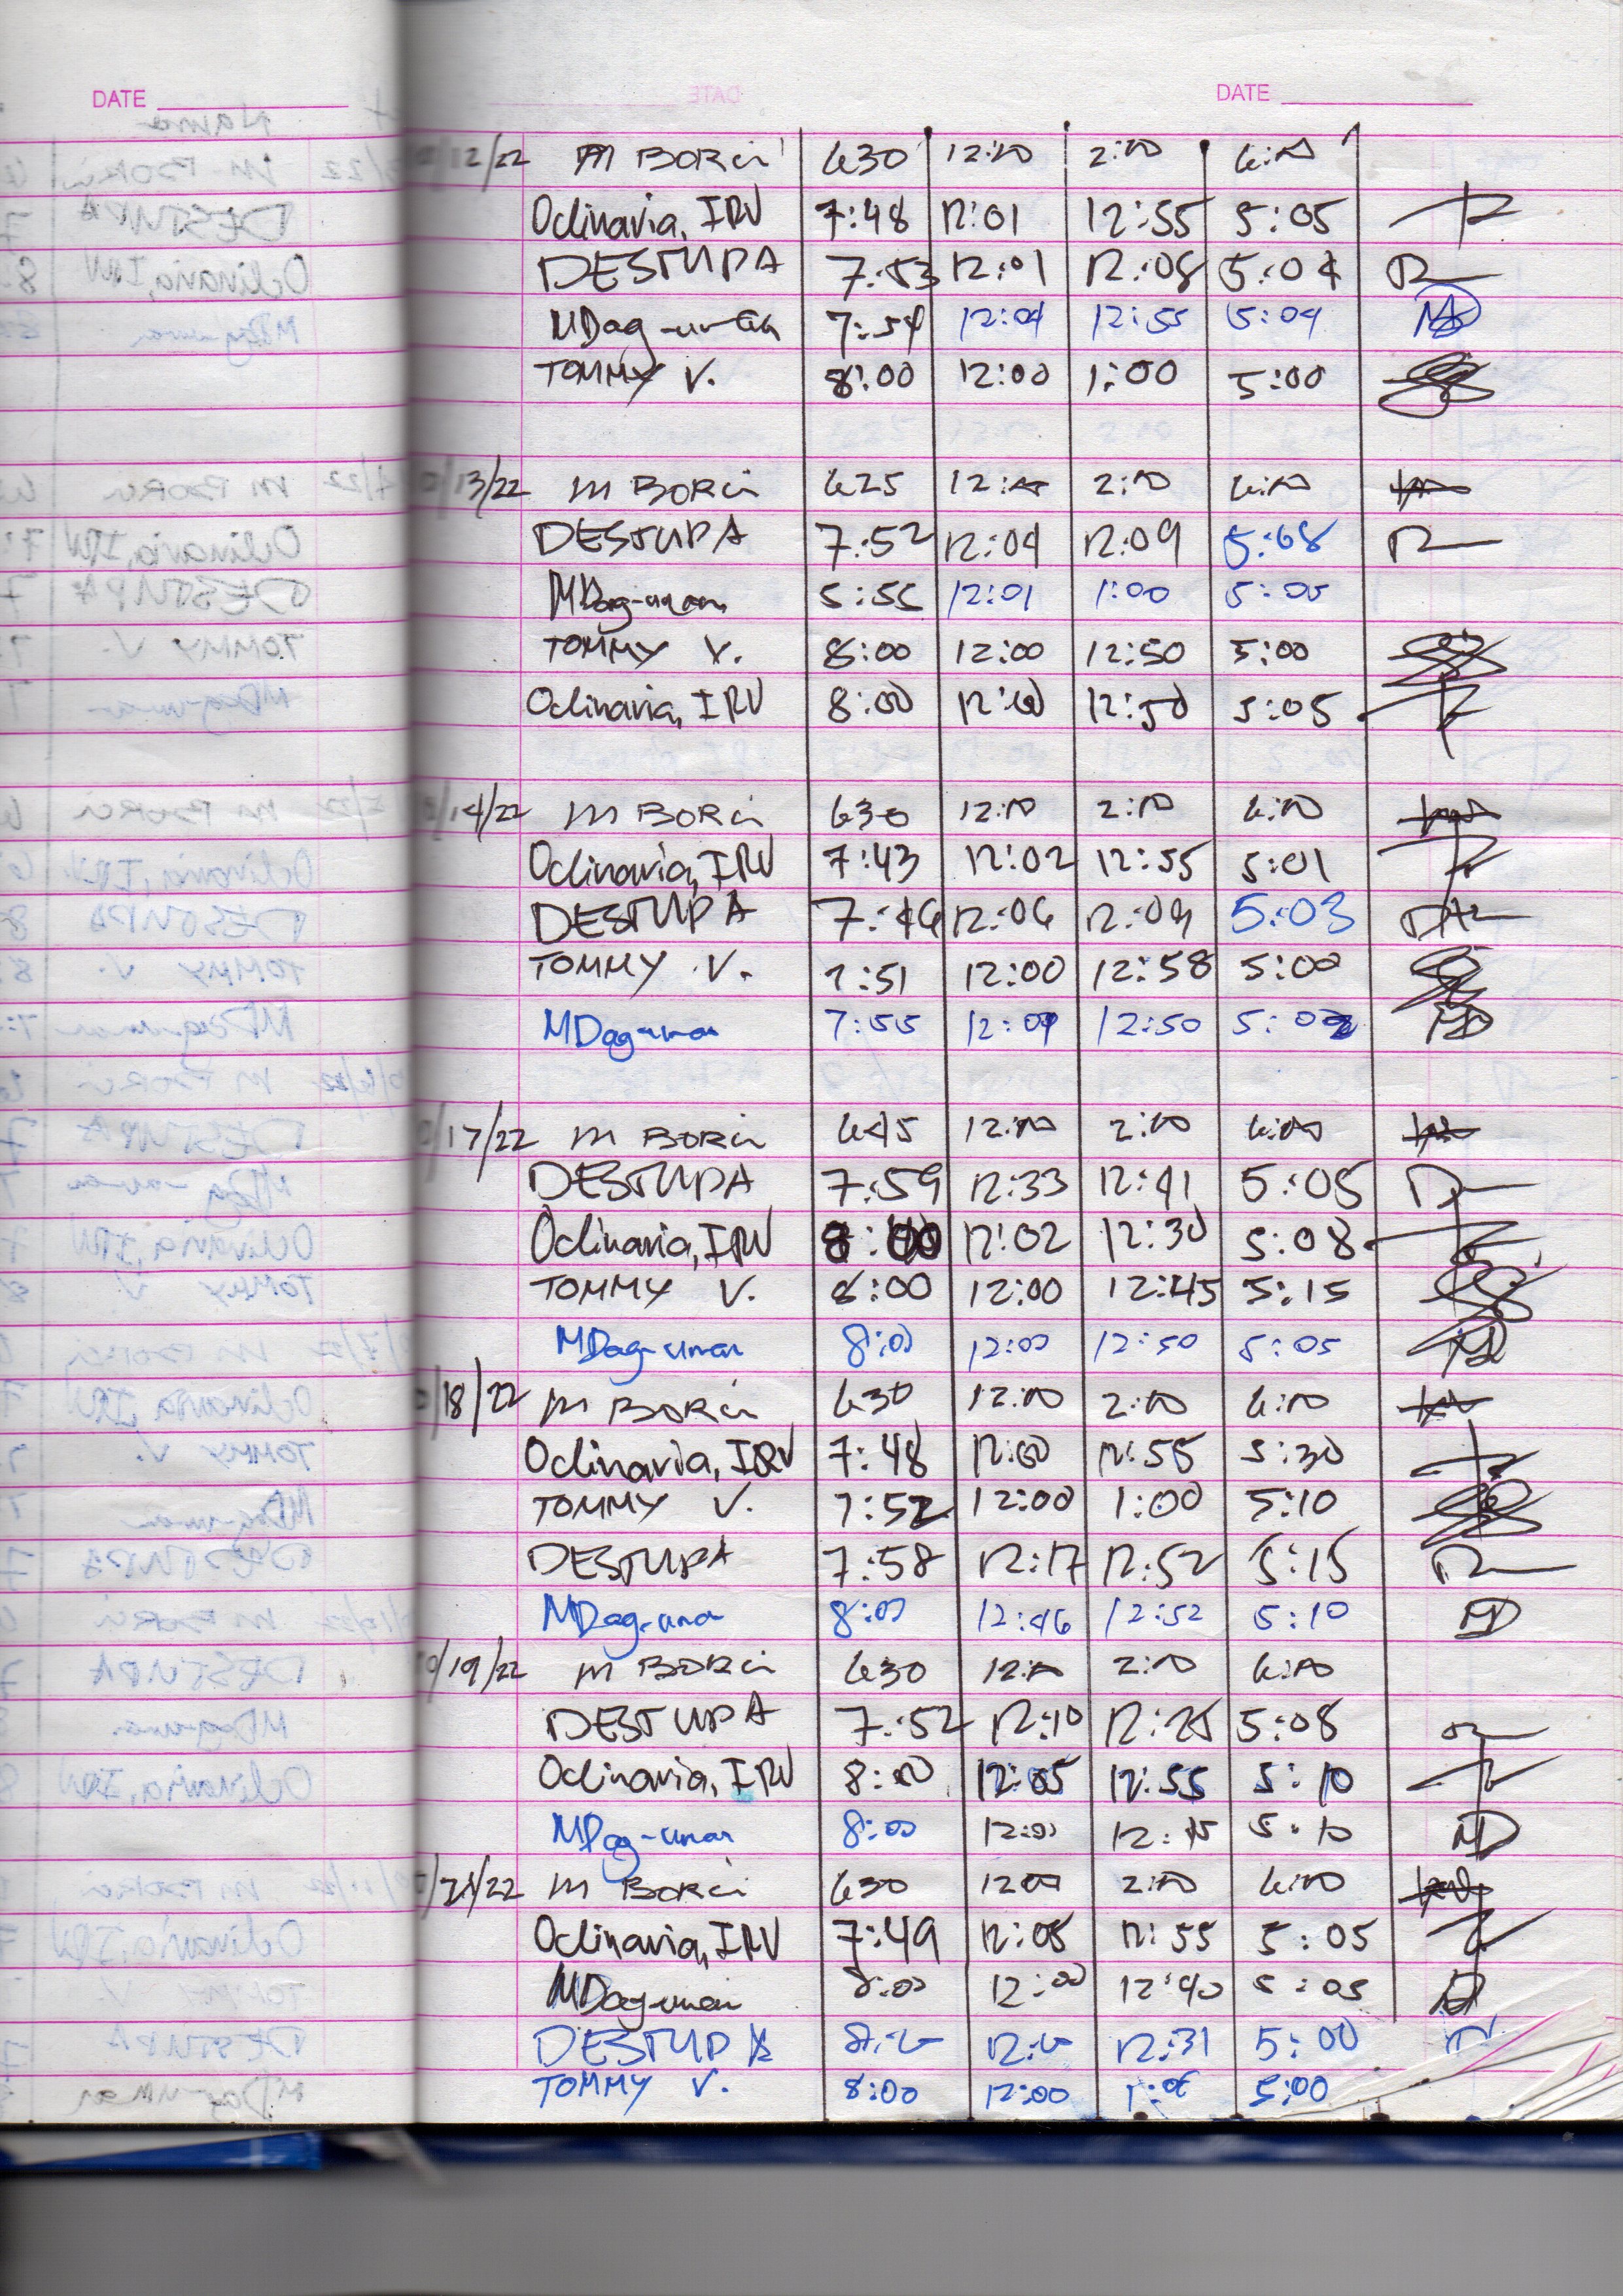 DATE
DATE
12/22 M BORCI 630 12:00 2:00 6:00
Odinaria, IRV 7:48 12:01 12:55 5:05
DESTUPA 7:53 12:01 12:08 5:04
MDag-uman 7:54 12:04 12:55 5:04
TOMMY V. 8:00 12:00 1:00 5:00
13/22 M BORCI 625 12:00 2:00 6:00
DESTUPA 7:52 12:04 12:09 5:08
MDag-uman 5:55 12:01 1:00 5:05
TOMMY V. 8:00 12:00 12:50 5:00
Odinaria, IRV 8:00 12:00 12:50 5:05
14/22 M BORCI 630 12:00 2:00 6:00
Odinaria, IRV 7:43 12:02 12:55 5:01
DESTUPA 7:46 12:06 12:09 5:03
TOMMY V. 7:51 12:00 12:58 5:00
MDag-uman 7:55 12:09 12:50 5:02
17/22 M BORCI 645 12:00 2:00 6:00
DESTUPA 7:59 12:33 12:41 5:05
Odinaria, IRV 8:00 12:02 12:30 5:08
TOMMY V. 8:00 12:00 12:45 5:15
MDag-uman 8:00 12:00 12:50 5:05
18/22 M BORCI 630 12:00 2:00 6:00
Odinaria, IRV 7:48 12:00 12:55 5:30
TOMMY V. 7:52 12:00 1:00 5:10
DESTUPA 7:58 12:17 12:52 5:15
MDag-uman 8:00 12:46 12:52 5:10 MD
19/22 M BORCI 630 12:00 2:00 6:00
DESTUPA 7:52 12:10 12:25 5:08
Odinaria, IRV 8:00 12:05 12:55 5:10
MDag-uman 8:00 12:00 12:45 5:10 MD
21/22 M BORCI 630 1200 2:00 6:00
Odinaria, IRV 7:49 12:05 12:55 5:05
MDag-uman 8:00 12:00 12:40 5:05
DESTUPA 12:31 5:00
TOMMY V. 8:00 12:00 5:00